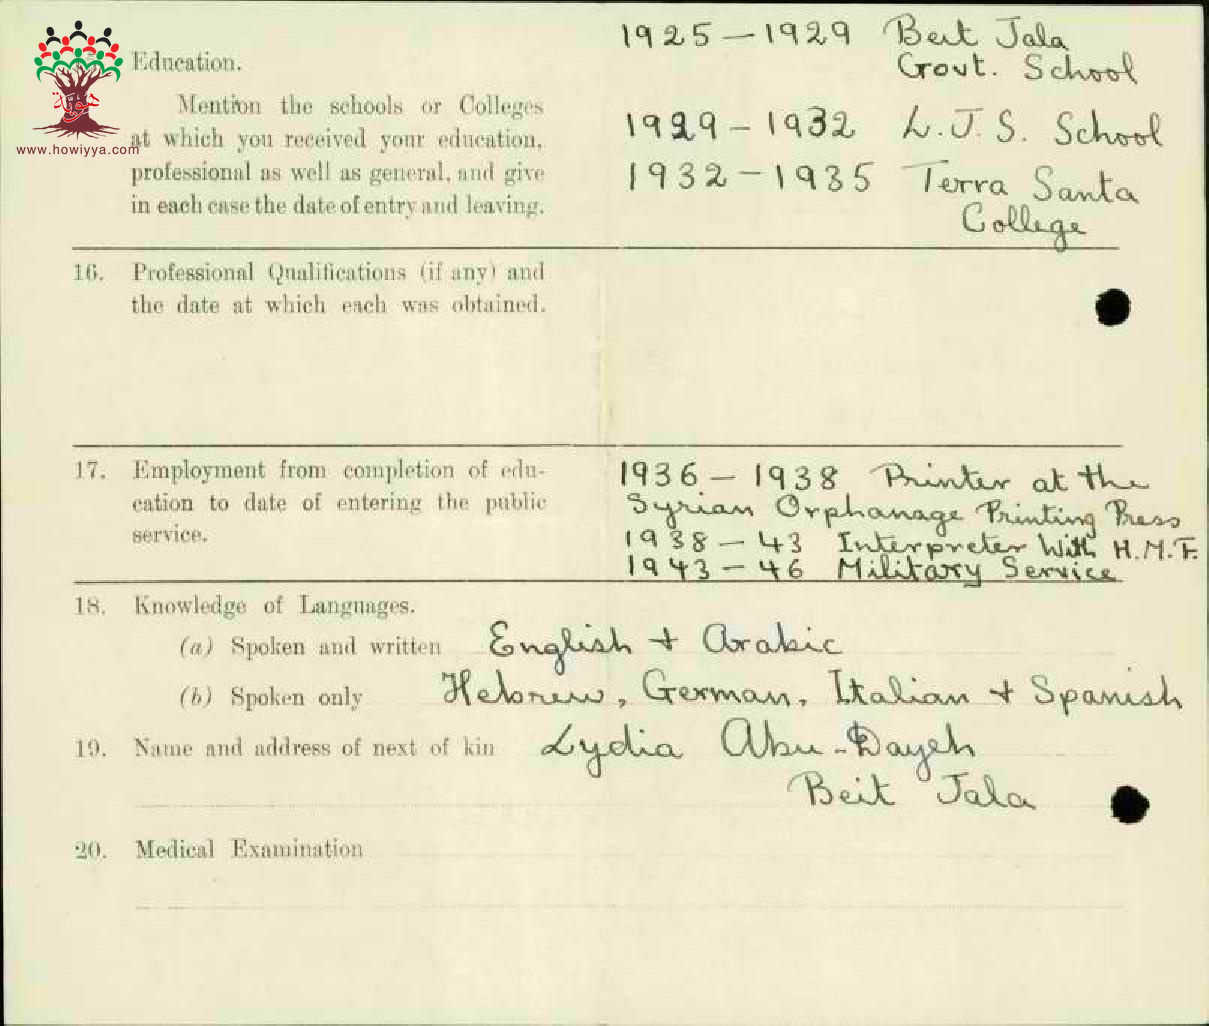 1925 – 1929 Beit Jala
Education.
Govt. School
Mention the schools or Colleges
at which you received your education,
professional as well as general, and give
in each case the date of entry and leaving.
1929 – 1932 L.J.S. School
1932 – 1935 Terra Santa
College
www.howiyya.com
16. Professional Qualifications (if any) and
the date at which each was obtained.
17. Employment from completion of edu-
cation to date of entering the public
service.
1936 – 1938 Printer at the
Syrian Orphanage Printing Press
1938 – 43 Interpreter With H.M.F.
1943 – 46 Military Service
18. Knowledge of Languages.
(a) Spoken and written English + Arabic
(b) Spoken only Hebrew, German, Italian + Spanish
19. Name and address of next of kin Lydia Abu-Dayeh
Beit Jala
20. Medical Examination